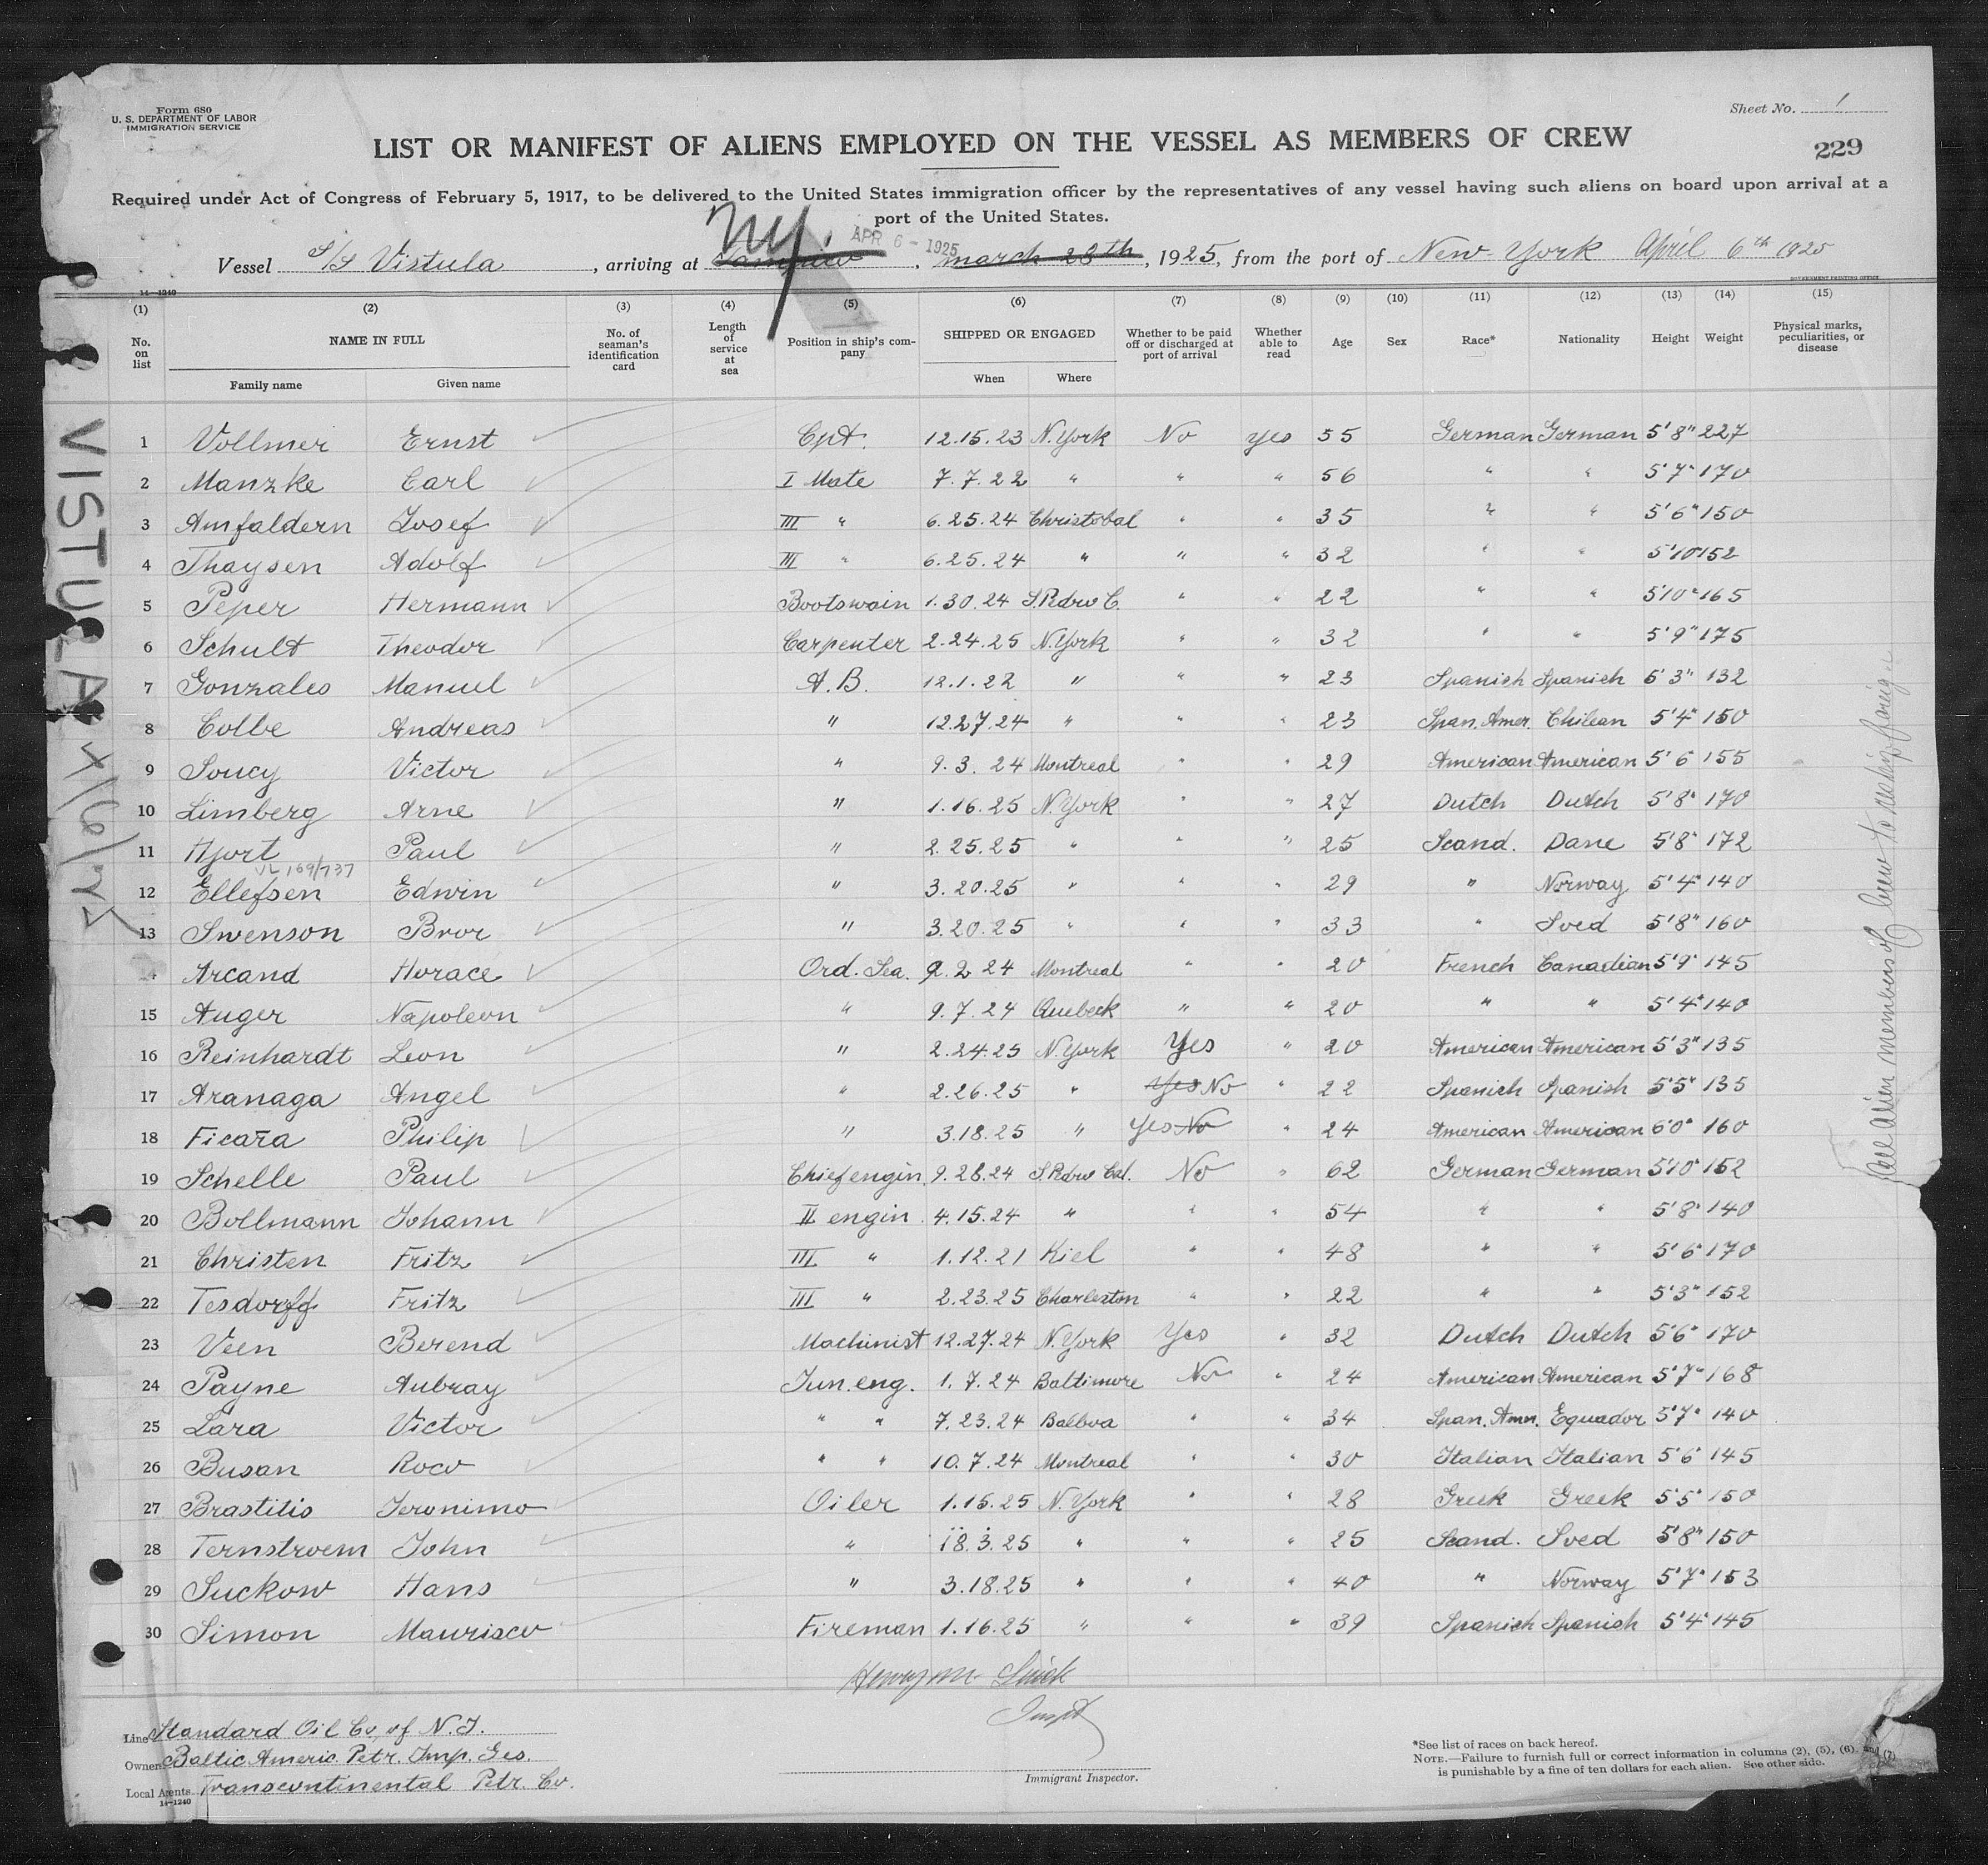 Form 680
U. S. DEPARTMENT OF LABOR
IMMIGRATION SERVICE
Sheet No. 1
LIST OR MANIFEST OF ALIENS EMPLOYED ON THE VESSEL AS MEMBERS OF CREW
229
Required under Act of Congress of February 5, 1917, to be delivered to the United States immigration officer by the representatives of any vessel having such aliens on board upon arrival at a
port of the United States.
NY. APR 6 - 1925
Vessel S/S Vistula, arriving at Tampico, march 28th, 1925, from the port of New-York April 6th 1925
14—1240
GOVERNMENT PRINTING OFFICE
(1) (2) (3) (4) (5) (6) (7) (8) (9) (10) (11) (12) (13) (14) (15)
No. on list NAME IN FULL No. of seaman's identification card Length of service at sea Position in ship's company SHIPPED OR ENGAGED Whether to be paid off or discharged at port of arrival Whether able to read Age Sex Race* Nationality Height Weight Physical marks, peculiarities, or disease
Family name Given name When Where
1 Vollmer Ernst Cpt. 12.15.23 N.York No yes 55 German German 5'8" 227
2 Manzke Carl I Mate 7.7.22 " " " 56 " " 5'7" 170
3 Amfaldern Josef III " 6.25.24 Christobal " " 35 " " 5'6" 150
4 Thaysen Adolf III " 6.25.24 " " " 32 " " 5'10 152
5 Peper Hermann Bootswain 1.30.24 S.Pedro C. " " 22 " " 5'10" 165
6 Schult Theodor Carpenter 2.24.25 N.York " " 32 " " 5'9" 175
7 Gonzales Manuel A.B. 12.1.22 " " " 23 Spanish Spanish 5'3" 132
8 Colbe Andreas " 12.27.24 " " " 23 Span.Amer. Chilean 5'4" 150
9 Soucy Victor " 9.3.24 Montreal " " 29 American American 5'6 155
10 Limberg Arne " 1.16.25 N.York " " 27 Dutch Dutch 5'8" 170
11 Hjort Paul " 2.25.25 " " " 25 Scand. Dane 5'8" 172
VL 169/737
12 Ellefsen Edwin " 3.20.25 " " " 29 " Norway 5'4" 140
13 Swenson Bror " 3.20.25 " " " 33 " Sved 5'8" 160
Arcand Horace Ord. Sea. 9.2 24 Montreal " " 20 French Canadian 5'9" 145
15 Auger Napoleon " 9.7.24 Quebeck " " 20 " " 5'4" 140
16 Reinhardt Leon " 2.24.25 N.York Yes " 20 American American 5'3" 135
17 Aranaga Angel " 2.26.25 " Yes No " 22 Spanish Spanish 5'5" 135
18 Ficara Philip " 3.18.25 " Yes No " 24 American American 6'0" 160
19 Schelle Paul Chief engin. 9.28.24 S.Pedro Cal. No " 62 German German 5'10" 152
20 Bollmann Johann II engin 4.15.24 " " " 54 " " 5'8" 140
21 Christen Fritz III " 1.12.21 Kiel " " 48 " " 5'6" 170
22 Tesdorff Fritz III " 2.23.25 Charleston " " 22 " " 5'3" 152
23 Veen Berend Machinist 12.27.24 N.York Yes " 32 Dutch Dutch 5'6" 170
24 Payne Aubray Jun.eng. 1.7.24 Baltimore No " 24 American American 5'7" 168
25 Lara Victor " " 7.23.24 Balboa " " 34 Span. Amer. Equador 5'7" 140
26 Busan Roco " " 10.7.24 Montreal " " 30 Italian Italian 5'6" 145
27 Brastitis Jeronimo Oiler 1.15.25 N.York " " 28 Greek Greek 5'5" 150
28 Ternstroem John " 18.3.25 " " " 25 Scand. Sved 5'8" 150
29 Suckow Hans " 3.18.25 " " " 40 " Norway 5'7" 153
30 Simon Maurisco Fireman 1.16.25 " " " 39 Spanish Spanish 5'4" 145
Henry M.
Inspt
Line Standard Oil Co. of N.J.
Owner Baltic Americ. Petr. Imp. Ges.
Local Agents Transcontinental Petr. Co.
14—1240
Immigrant Inspector.
*See list of races on back hereof.
NOTE.—Failure to furnish full or correct information in columns (2), (5), (6), and (7)
is punishable by a fine of ten dollars for each alien. See other side.
VISTULA 4/6/25
All alien members of crew to reship foreign